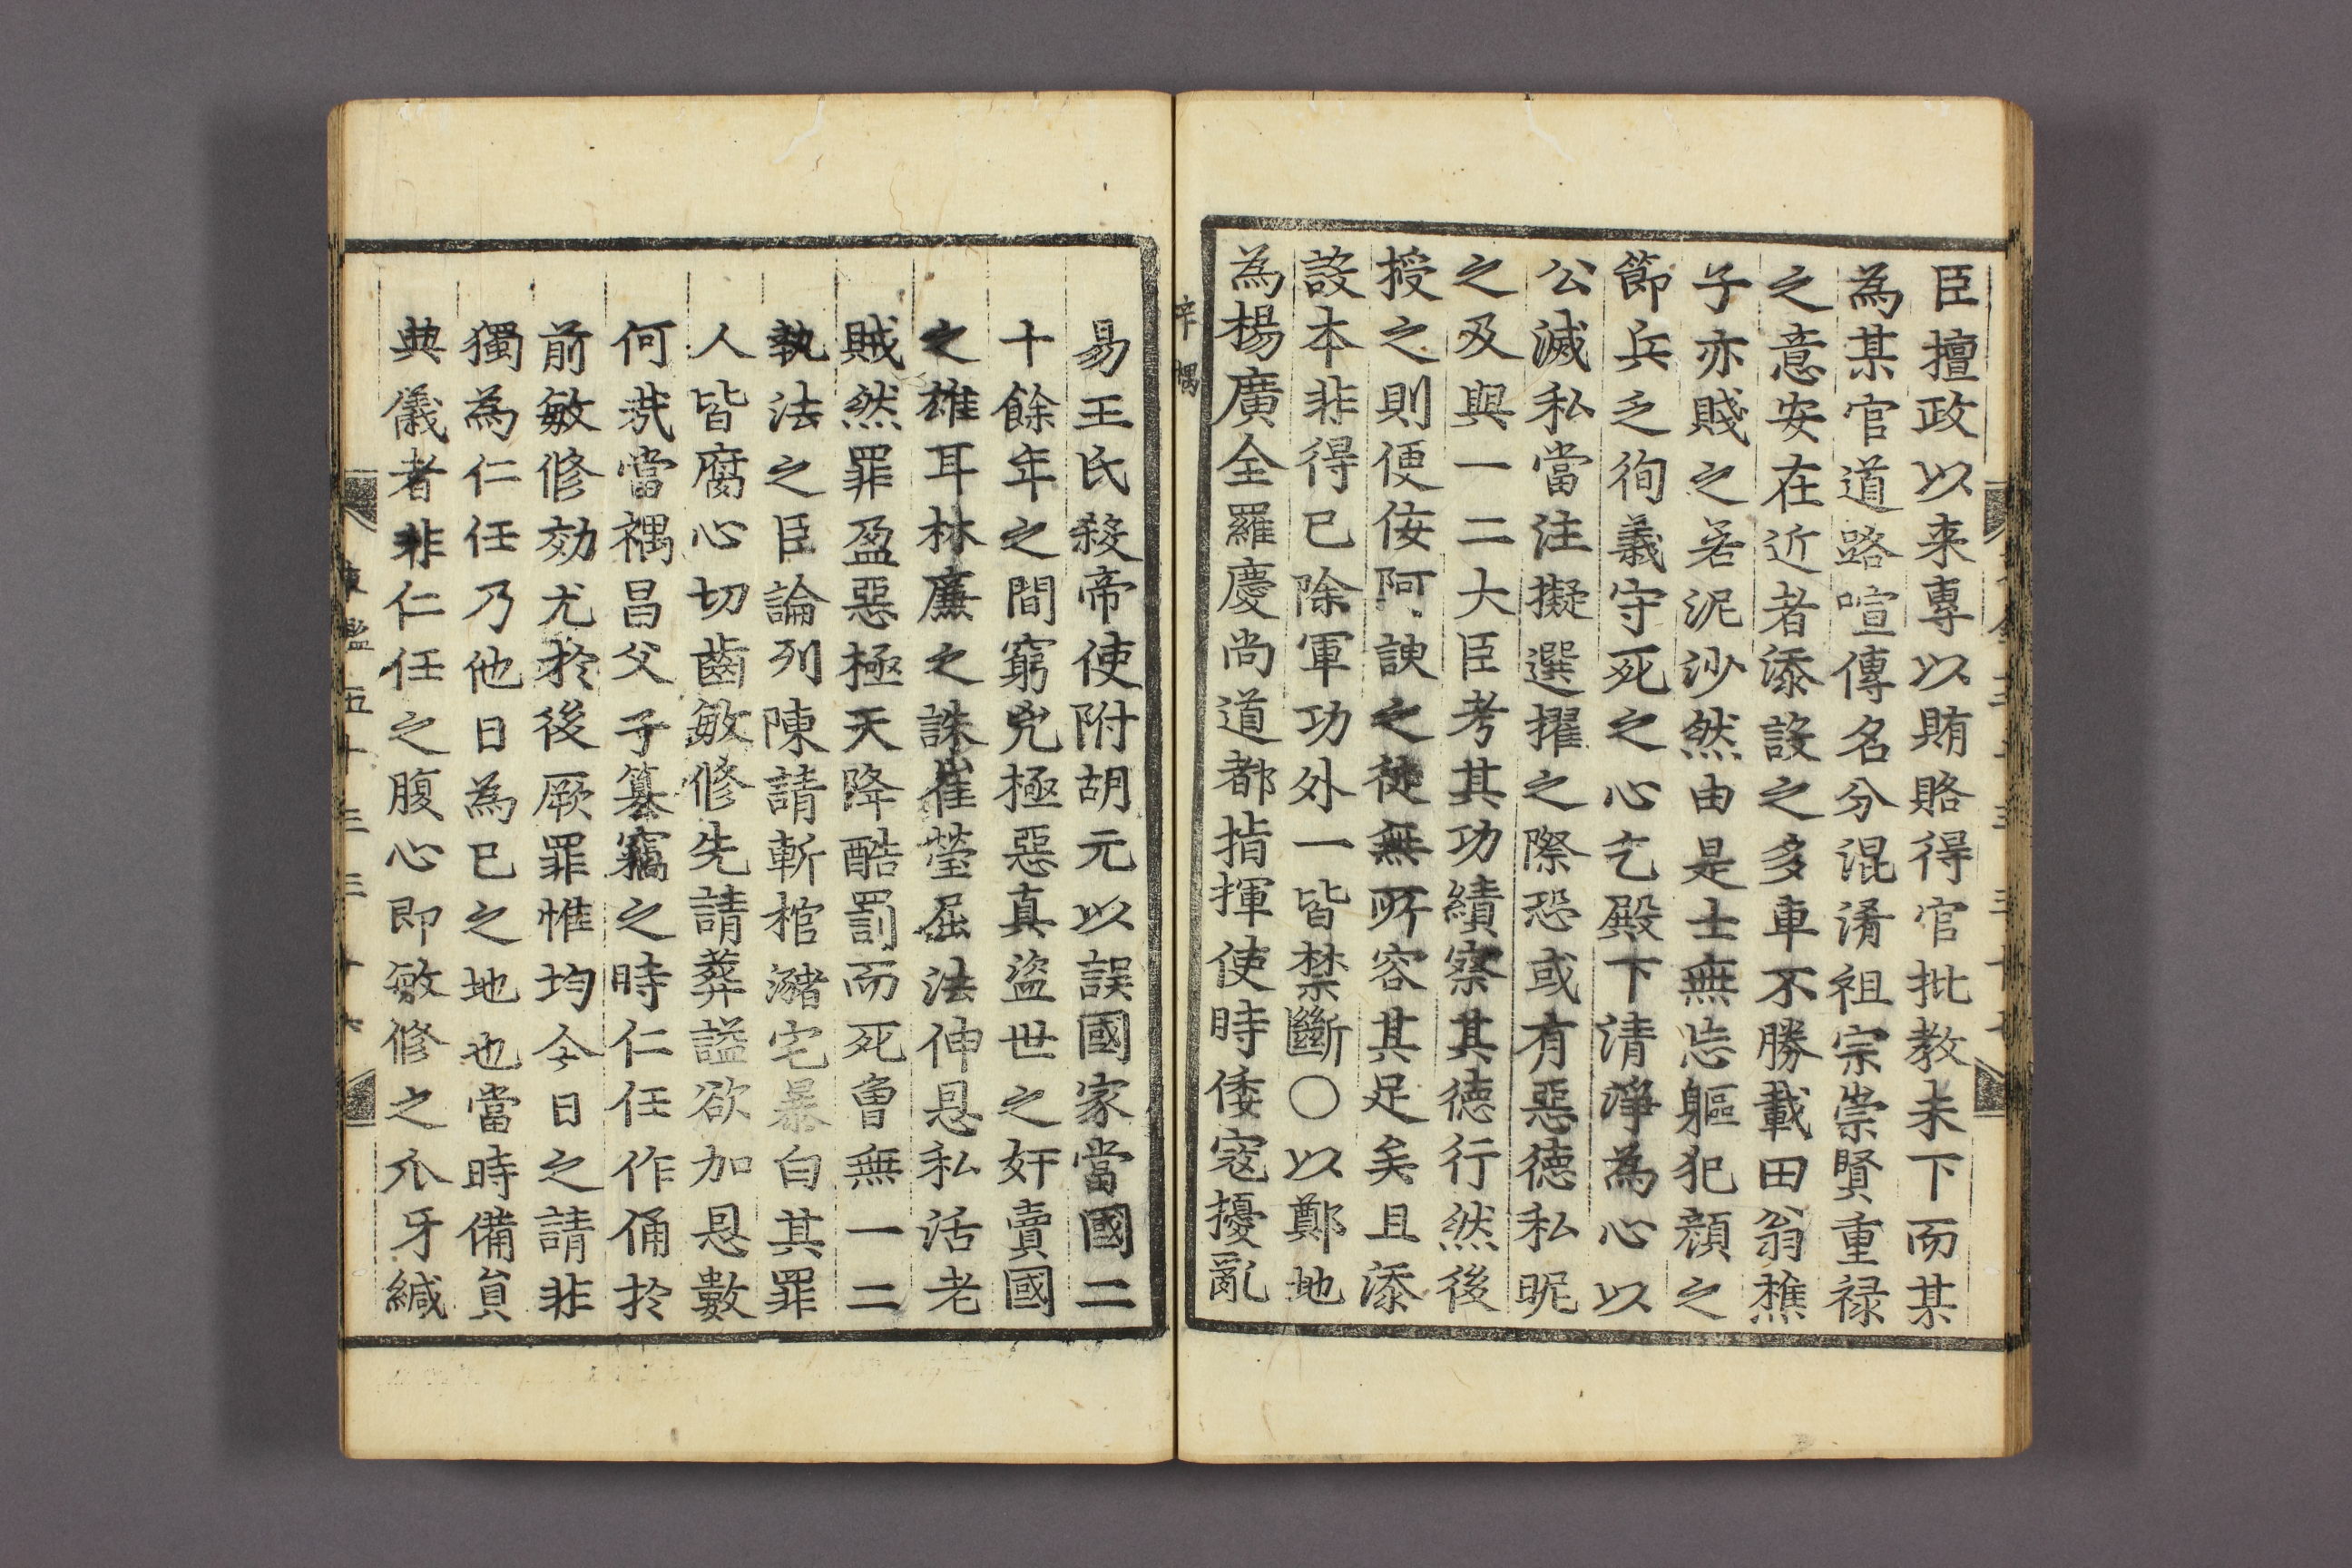 臣擅政以来專以賄賂得官批教未下而某
為某官道路喧傳名分混淆祖宗崇賢重禄
之意安在近者添設之多車不勝載田翁樵
子亦賤之若泥沙然由是士無忘軀犯顔之
節兵乏徇義守死之心乞殿下清淨為心以
公滅私當注擬選擢之際恐或有惡德私昵
之及與一二大臣考其功績察其德行然後
授之則便侫阿諛之徒無所容其足矣且添
設本非得已除軍功外一皆禁斷○以鄭地
為楊廣全羅慶尚道都指揮使時倭寇擾亂
辛禑
易王氏殺帝使附胡元以誤國家當國二
十餘年之間窮兇極惡真盜世之奸賣國
之雄耳林廉之誅崔瑩屈法伸恩私活老
賊然罪盈惡極天降酷罰而死曾無一二
執法之臣論列陳請斬棺瀦宅暴白其罪
人皆腐心切齒敏修先請葬謚欲加恩數
何哉當禑昌父子簒竊之時仁任作俑於
前敏修効尤於後厥罪惟均今日之請非
獨為仁任乃他日為已之地也當時備員
典儀者非仁任之腹心即敏修之爪牙緘